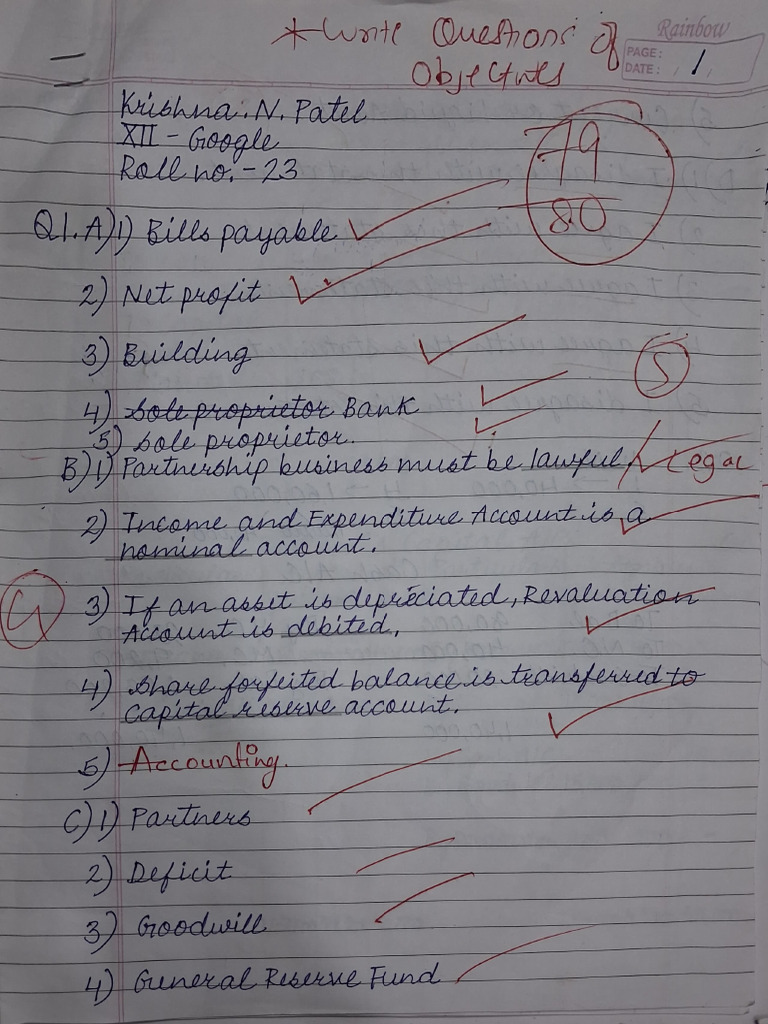 * Write Questions of
Objectives
Rainbow
PAGE:
DATE: 1
Krishna. N. Patel
XII - Google
Roll no. - 23
79
80
Q1. A) 1) Bills payable
2) Net profit
3) Building
5
4) sole proprietor Bank
5) sole proprietor.
B) 1) Partnership business must be lawful / Legal
2) Income and Expenditure Account is a
nominal account.
4
3) If an asset is depreciated, Revaluation
Account is debited.
4) Share forfeited balance is transferred to
Capital reserve account.
5) Accounting.
C) 1) Partners
2) Deficit
3) Goodwill
4) General Reserve Fund